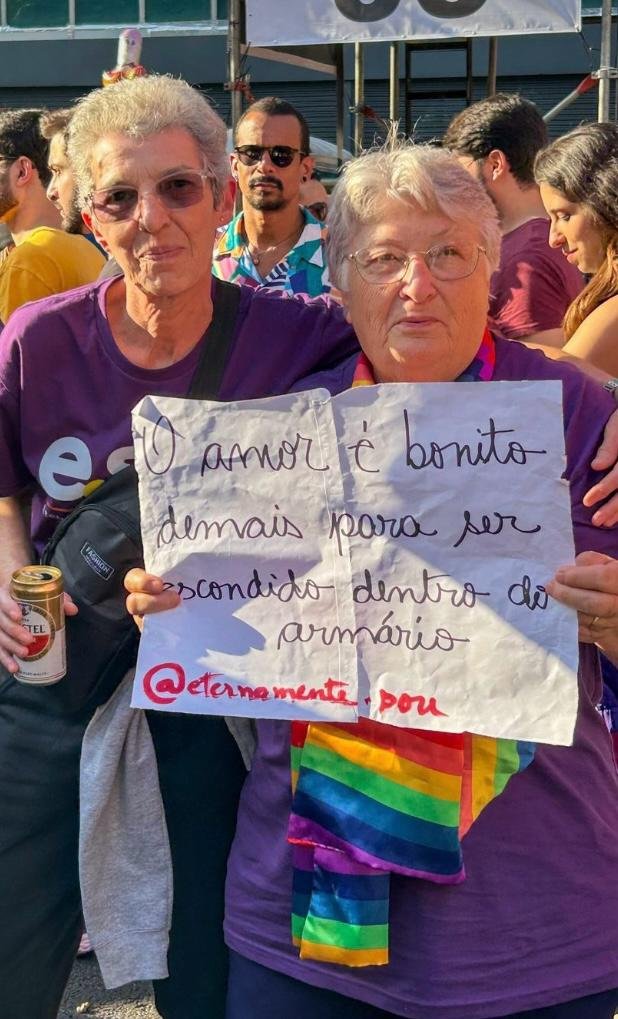 O amor é bonito
demais para ser
escondido dentro do
armário
@eternamente.sou
FASHION